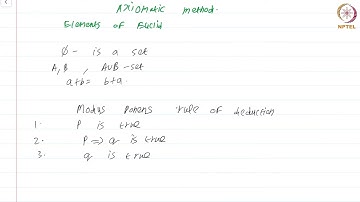 Axiomatic method.
Elements of Euclid
NPTEL
φ - is a set
A, B , A∪B - set
a+b = b+a.
Modus Ponens rule of deduction
1. P is true
2. P ⇒ q is true
3. q is true